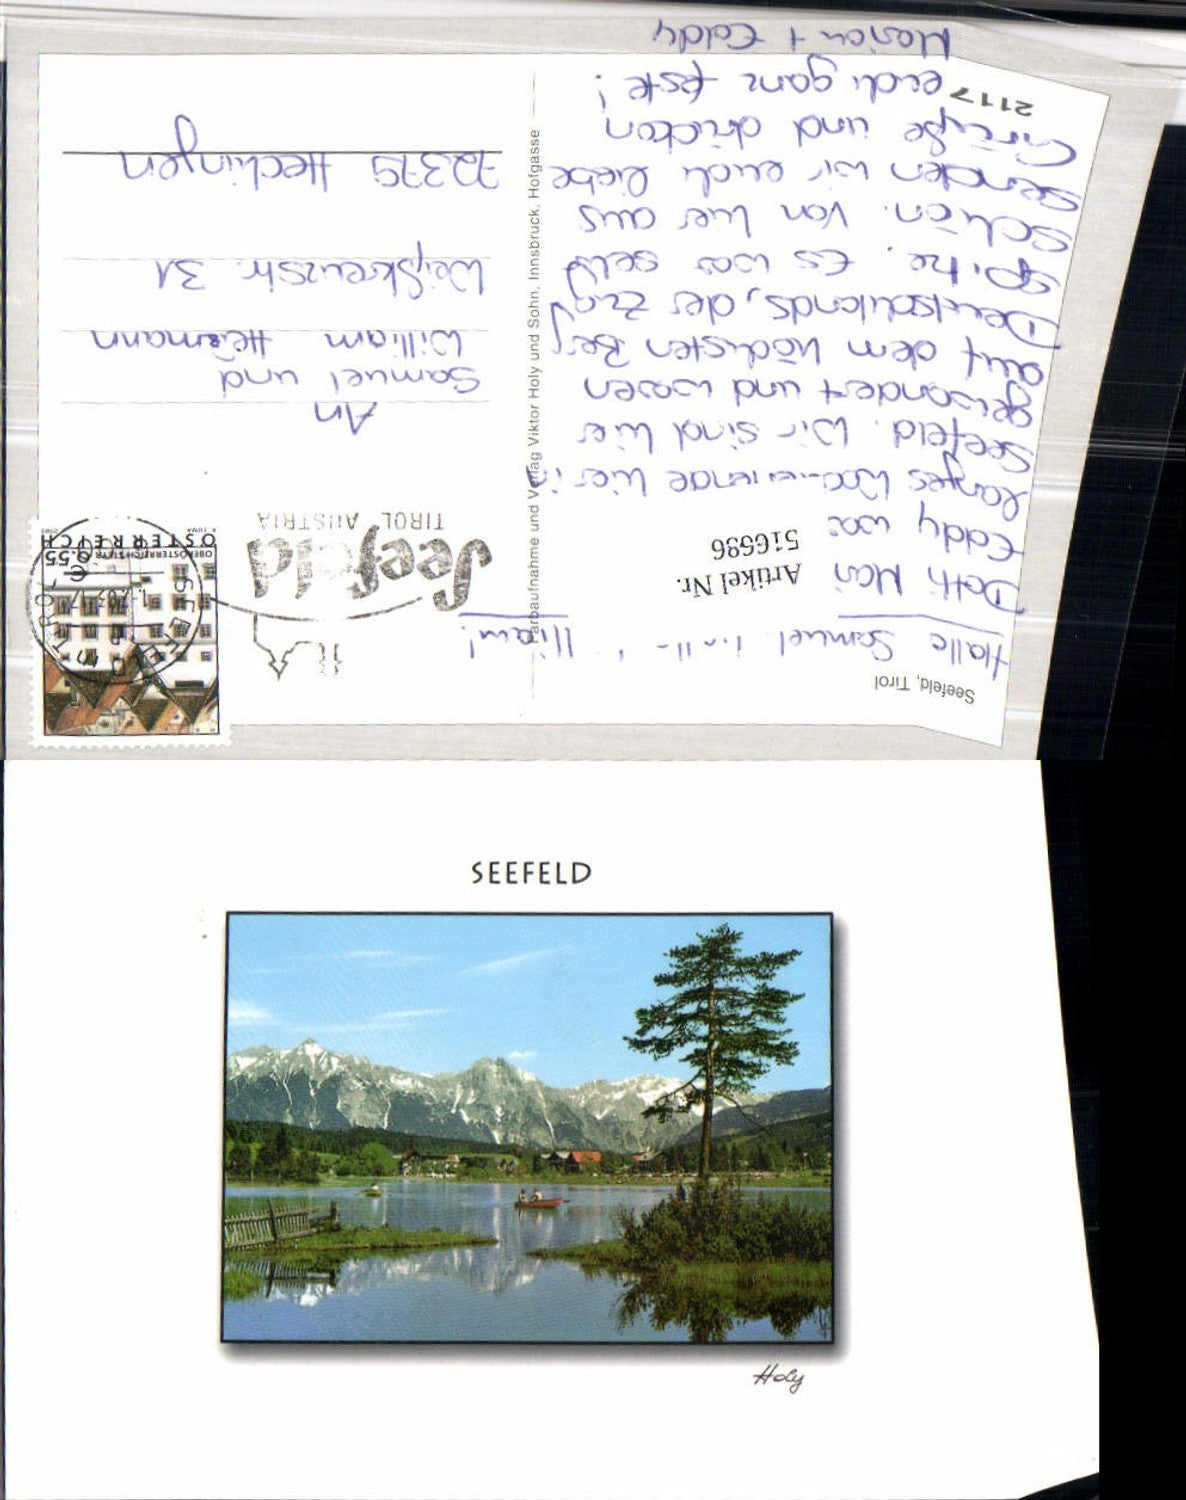 Seefeld, Tirol
Hallo Samuel
Eddy
langes hier in
Seefeld. Wir sind hier
gewandert und waren
auf dem höchsten Berg
Deutschlands, der Zug
spitze. Es war sehr
schön. Von hier aus
senden wir euch liebe
Grüße und drücken
euch ganz feste!
Marion + Eddy
2117
Artikel Nr.
516586
Farbaufnahme und Verlag Viktor Holy und Sohn, Innsbruck, Hofgasse
Seefeld
TIROL AUSTRIA
0.55 €
OBERÖSTERREICH
ÖSTERREICH
An
Samuel und
William Heumann
Weißkreuzstr. 31
72379 Hechingen
SEEFELD
Holy